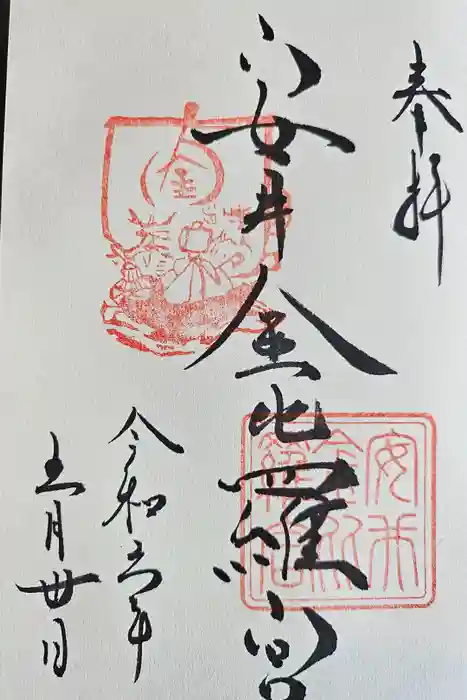 奉拝
安井金比羅宮
令和六年
五月廿日
金
安井
金比
羅宮